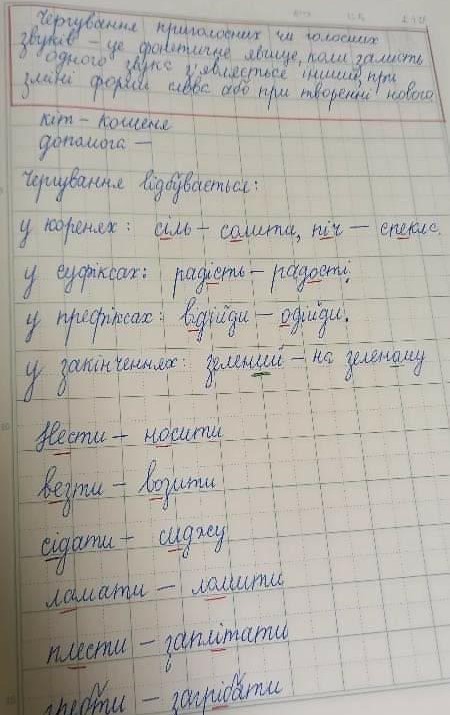 Чергування приголосних чи голосних
звуків – це фонетичне явище, коли замість
одного звука з'являється інший при
зміні форми слова або при творенні нового
кіт – кошеня
допомога –
Чергування відбувається:
у коренях: сіль – солити, піч – спекла.
у суфіксах: радість – радості.
у префіксах: відійди – одійди.
у закінченнях: зелений – на зеленому
Нести – носити
везти – возити
сідати – сиджу
ламати – ломити
плести – заплітати
гребти – загрібати